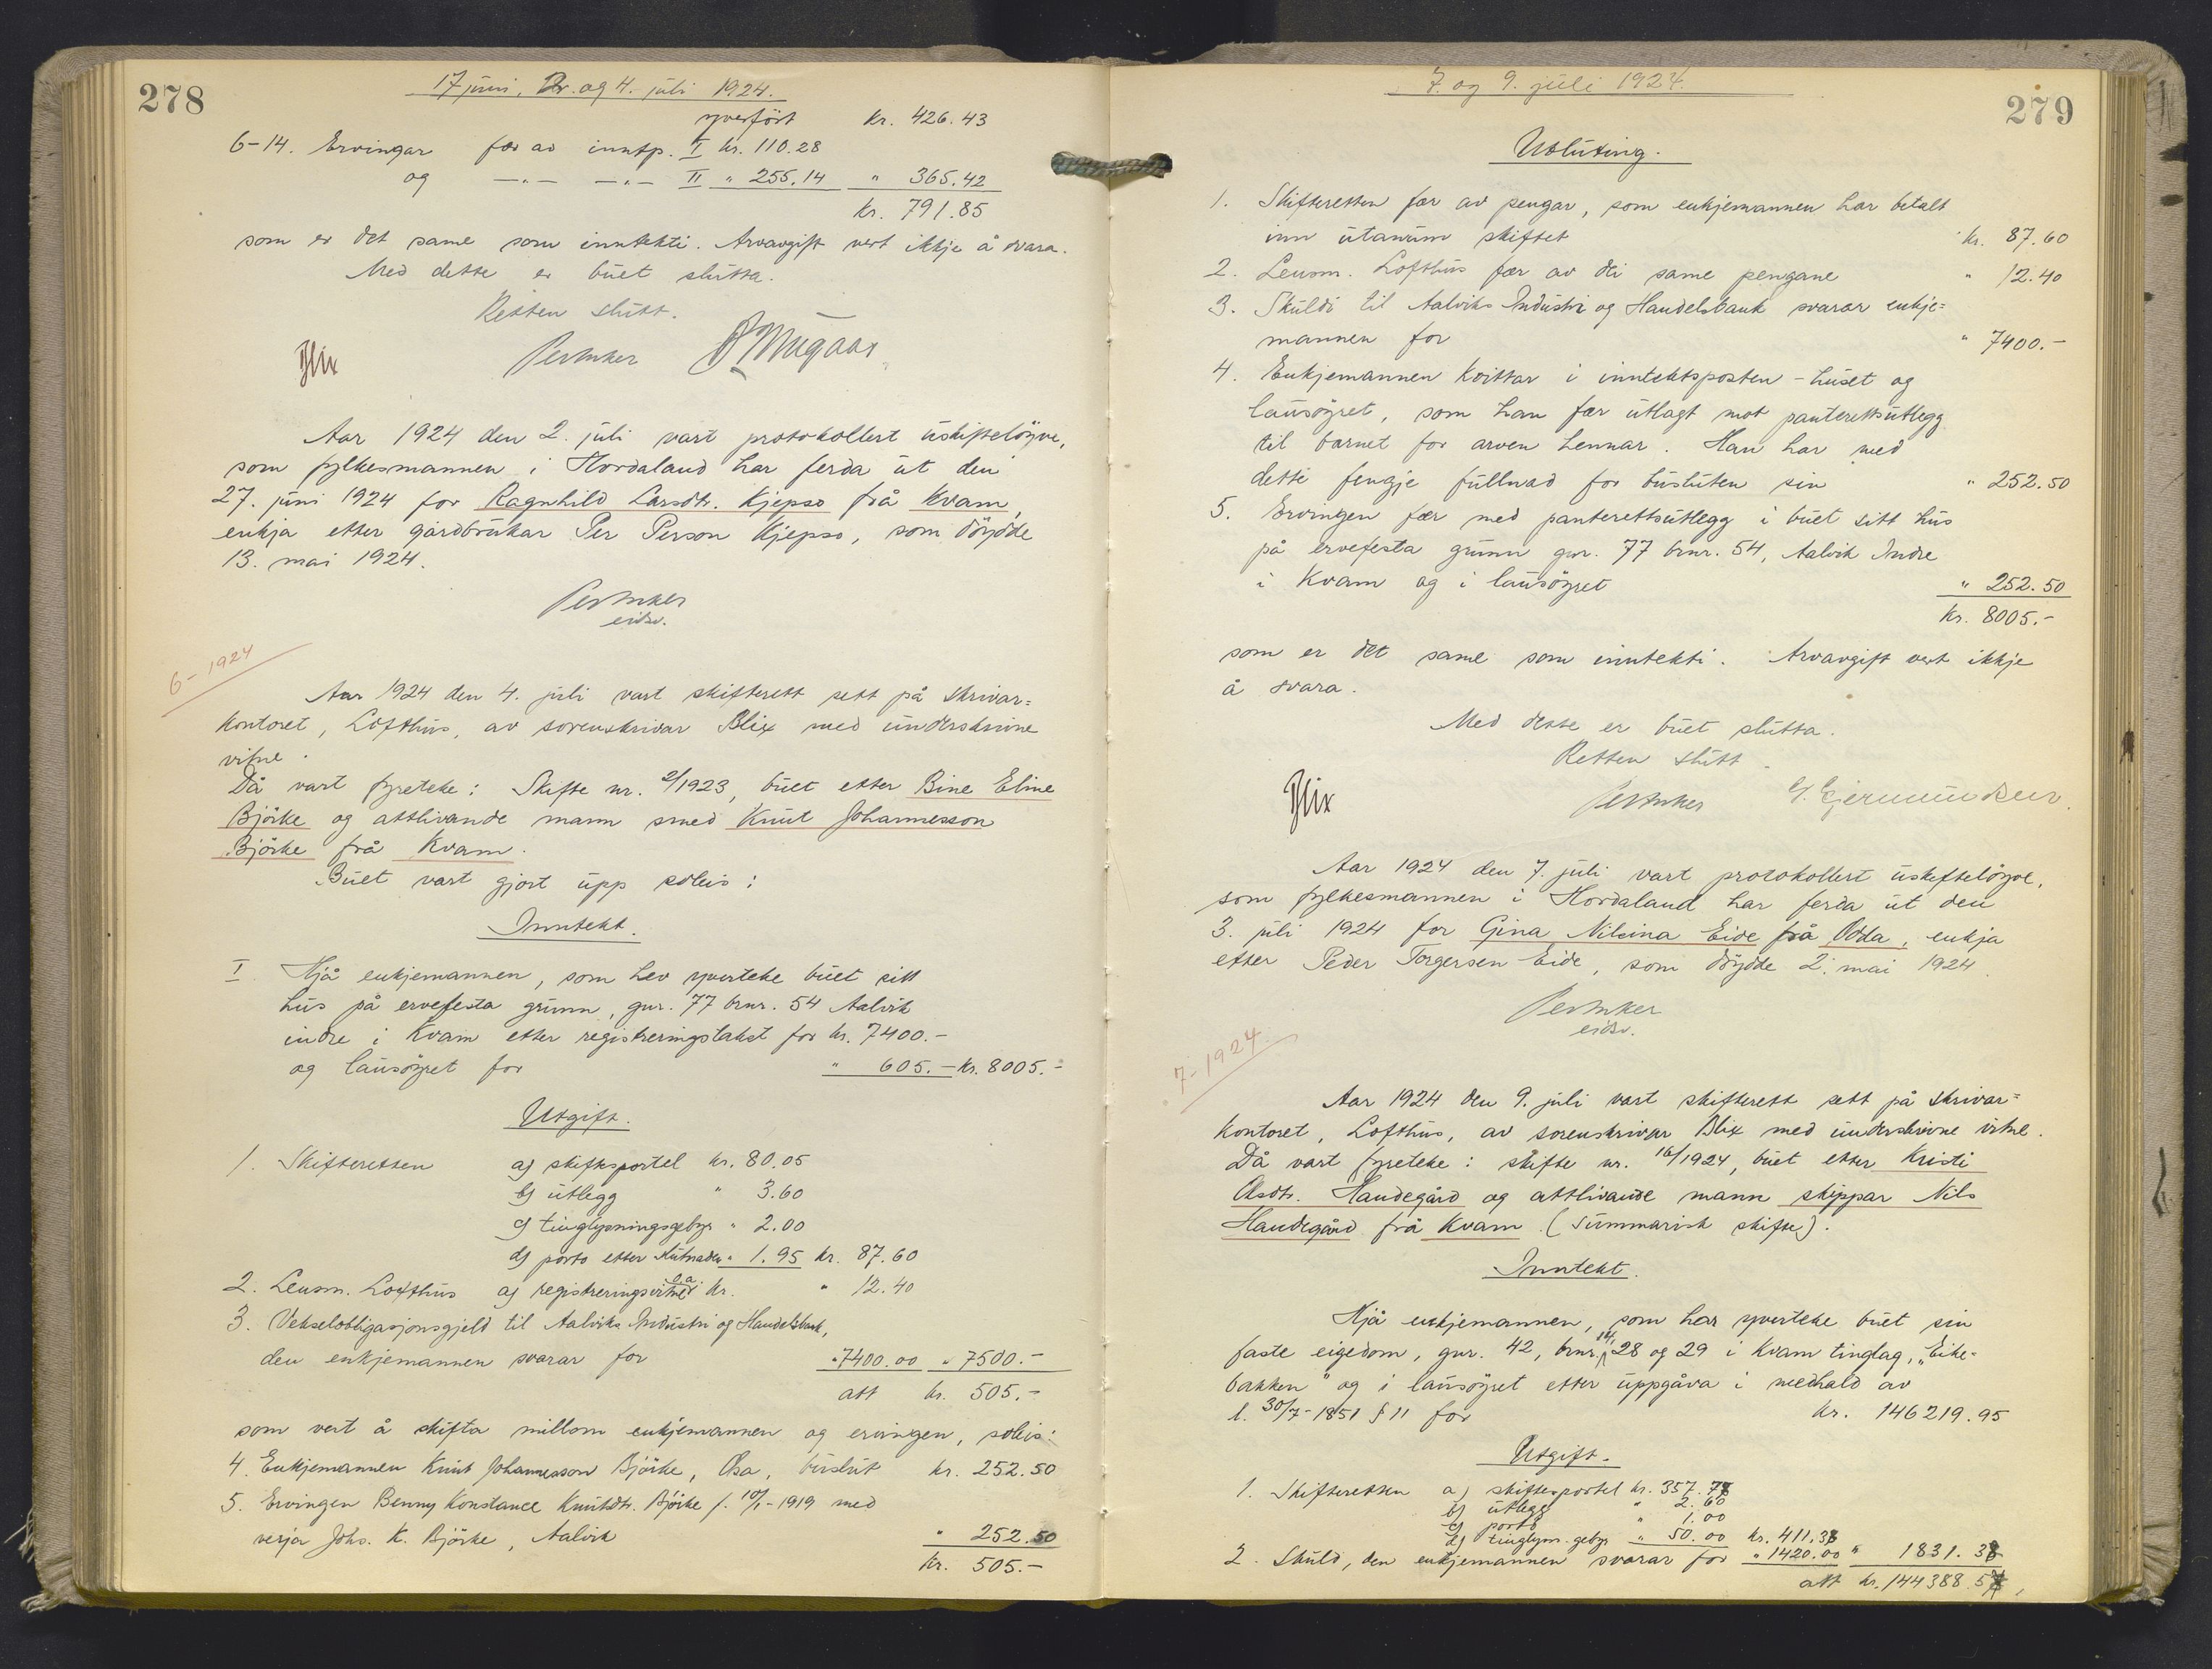 278
17 juni, 2. og 4. juli 1924.
yverfört kr. 426.43
6-14. Ervingar fær av inntp. I kr. 110.28
og —"— —"— II " 255.14 " 365.42
kr. 791.85
som er det same som inntekti. Arvavgift vert ikkje å svara.
Med dette er buet slutta.
Retten slutt.
Blix
Aar 1924 den 2. juli vart protokollert uskiftelöyve,
som fylkesmannen i Hordaland har ferda ut den
27. juni 1924 for Ragnhild Larsdtr. Kjepso frå Kvam,
enkja etter gardbrukar Per Person Kjepso, som döydde
13. mai 1924.
eidsv.
6-1924
Aar 1924 den 4. juli vart skifterett sett på skrivar=
kontoret, Lofthus, av sorenskrivar Blix med underskrivne
vitne.
Då vart fyreteke: Skifte nr. 2/1923, buet etter Bine Eline
Björke og attlivande mann smed Knut Johannesson
Björke frå Kvam.
Buet vart gjort upp soleis:
Inntekt.
I. Hjå enkjemannen, som hev yverteke buet sitt
hus på ervefesta grunn, gnr. 77 brnr. 54 Aalvik
indre i Kvam etter registreringstakst for kr. 7400.-
og lausöyret for " 605.- kr. 8005.-
Utgift.
1. Skifteretten a) skiftsportel kr. 80.05
b) utlegg " 3.60
c) tinglysningsgebyr " 2.00
d) porto etter " 1.95 kr. 87.60
2. Lensm. Lofthus a) registreringsvitne o.a. kr. " 12.40
3. Vekselobligasjonsgjeld til Aalviks Industri og Handelsbank,
den enkjemannen svarar for " 7400.00 " 7500.-
att kr. 505.-
som vert å skifta millom enkjemannen og ervingen, soleis:
4. Enkjemannen Knut Johannesson Björke, Osa, buslut kr. 252.50
5. Ervingen Benny Konstance Knutsdtr. Björke f. 10/1-1919 med
verja Johs. K. Björke, Aalvik " 252.50
kr. 505.-
7. og 9. juli 1924.
279
Utluting.
1. Skifteretten fær av pengar, som enkjemannen har betalt
inn utanum skiftet kr. 87.60
2. Lensm. Lofthus fær av dei same pengane " 12.40
3. Skuldi til Aalviks Industri og Handelsbank svarar enkje=
mannen for " 7400.-
4. Enkjemannen kvittar i inntektsposten - huset og
lausöyret, som han fær utlagt mot panterettsutlegg
til barnet for arven hennar. Han har med
dette fengje fullnad for busluten sin " 252.50
5. Ervingen fær med panterettsutlegg i buet sitt hus
på ervefesta grunn gnr. 77 brnr. 54, Aalvik Indre
i Kvam og i lausöyret " 252.50
kr. 8005.-
som er det same som inntekti. Arvavgift vert ikkje
å svara.
Med dette er buet slutta.
Retten slutt.
Blix
Aar 1924 den 7. juli vart protokollert uskiftelöyve,
som fylkesmannen i Hordaland har ferda ut den
3. juli 1924 for Gina Nilsina Eide frå Odda, enkja
etter Peder Torgersen Eide, som döydde 2. mai 1924.
eidsv.
7-1924.
Aar 1924 den 9. juli vart skifterett sett på skrivar=
kontoret, Lofthus, av sorenskrivar Blix med underskrivne vitne.
Då vart fyreteke: skifte nr. 16/1924, buet etter Kristi
Olsdtr. Handegård og attlivande mann skippar Nils
Handegård frå Kvam (summarisk skifte).
Inntekt.
Hjå enkjemannen, som har yverteke buet sin
faste eigedom, gnr. 42, brnr. 14, 28 og 29 i Kvam tinglag, "Eike-
bakken" og i lausöyret etter uppgåva i medhald av
l. 30/7-1851 § 11 for kr. 146219.95
Utgift.
1. Skifteretten a) skiftesportel kr. 357.78
b) utlegg " 2.60
c) porto " 1.00
d) tinglysn. gebyr " 50.00 kr. 411.38
2. Skuld, den enkjemannen svarar for " 1420.00 " 1831.38
att kr. 144388.57